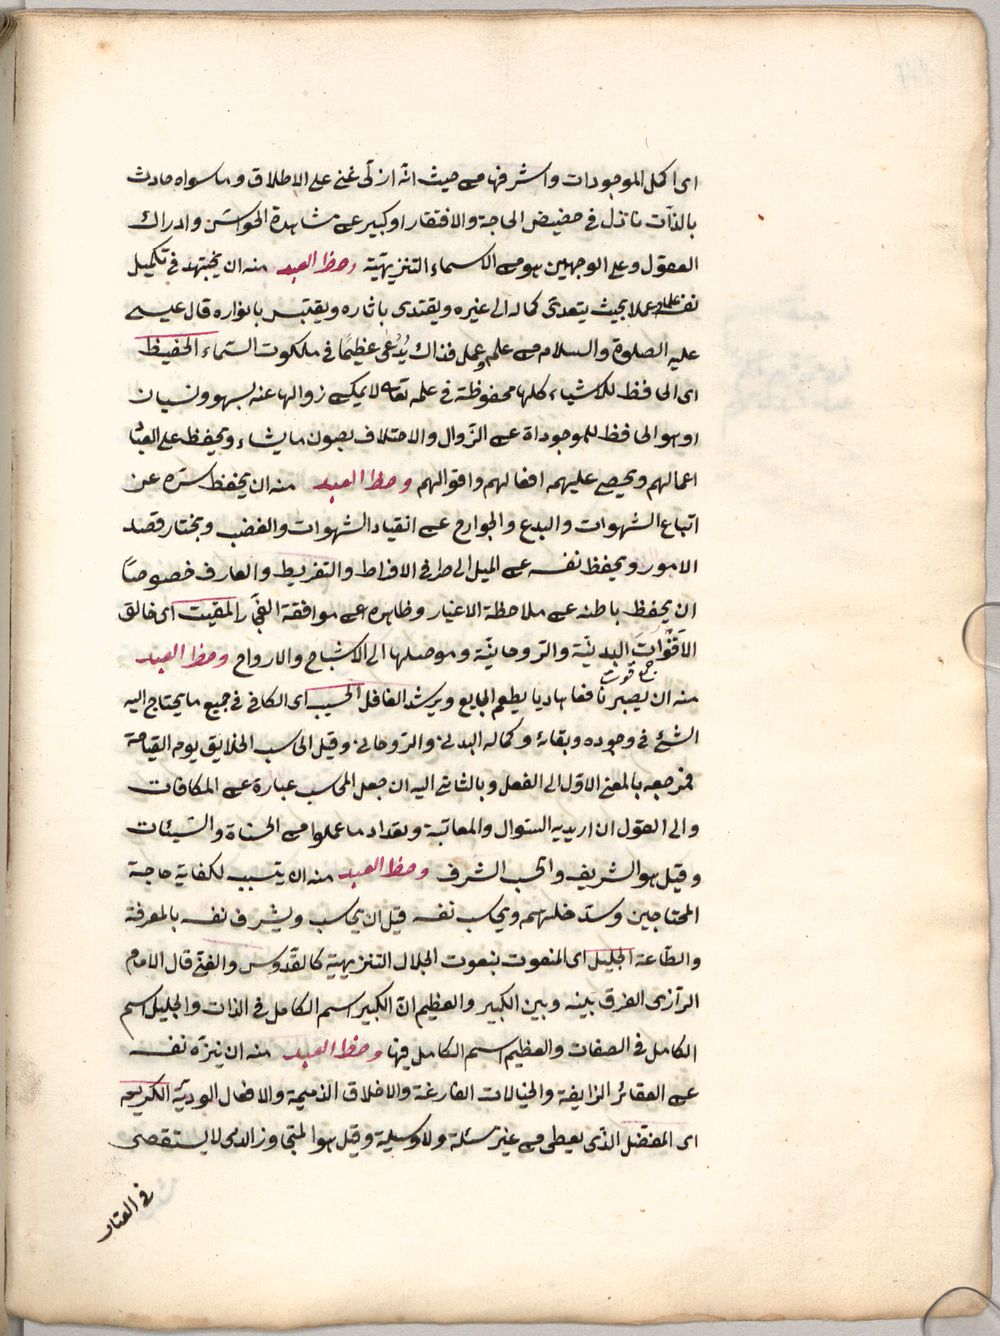 اى اكمل الموجودات واشرفها من حيث انه ازلى غنى على الاطلاق وما سواه حادث
بالذات نازل فى حضيض الحاجة والافتقار او كبير عن مشاهدة الحواس وادراك
العقول وعلى الوجهين هو من الاسماء التنزيهية وحظ العبد منه ان يجتهد فى تكميل
نفسه علما وعملا بحيث يتعدى كماله الى غيره ويقتدى باثاره ويقتبس بانواره قال عيسى
عليه الصلوة والسلام من علم وعمل فذاك يُدْعى عظيمًا فى ملكوت السماء الحفيظ
اى الحافظ للاشياء كلها محفوظة فى علمه تعالى لا يمكن زوالها عنه بسهو ونسيان
او هو الحافظ للموجوداة عن الزوال والاختلاف بصون ما يشاء ويحفظ على العباد
اعمالهم ويحصى عليهم افعالهم واقوالهم وحظ العبد منه ان يحفظ سرّه عن
اتباع الشهوات والبدع والجوارح عن انقياد الشهوات والغضب ويختار قصد
الامور ويحفظ نفسه عن الميل الى طرفى الافراط والتفريط والعارف خصوصًا
ان يحفظ باطنه عن ملاحظة الاغيار وظاهره عن موافقة الفجّار المقيت اى خالق
الاقوات البدنيّة والروحانيّة وموصلها الى الاشباح والارواح وحظ العبد
جمع قوت
منه ان يصير نافعا هاديا يطعم الجايع ويرشد الغافل الحسيب اى الكافى فى جميع ما يحتاج اليه
الشئ فى وجوده وبقائه وكماله البدنى والروحانى وقيل الحاسب الخلايق يوم القيامة
فمرجعه بالمعنى الاول الى الفعل وبالثانى اليه ان جعل المحاسب عبارة عن المكافات
والى القول ان اريد به السئوال والمعاتبة وتعداد ما عملوا من الحسناة والسّيئات
وقيل هو الشريف والحسب الشرف وحظ العبد منه ان يتسبب لكفاية حاجة
المحتاجين وسدّ خلتهم ويحاسب نفسه قبل ان يحاسب ويشرف نفسه بالمعرفة
والطاعة الجليل اى المنعوت بنعوت الجلال التنزيهية كالقدّوس والغنى قال الامام
الرازى الفرق بينه وبين الكبير والعظيم انّ الكبير اسم الكامل فى الذات والجليل اسم
الكامل فى الصفات والعظيم اسم الكامل فيها وحظ العبد منه ان ينزّه نفسه
عن العقائد الزايفة والخيالات الفارغة والاخلاق الذميمة والافعال الرديّة الكريم
اى المفضل الذى يعطى من غير مسئلة ولا وسيلة وقيل هو المتجاوز الذى لا يستقصى
فى العتاب